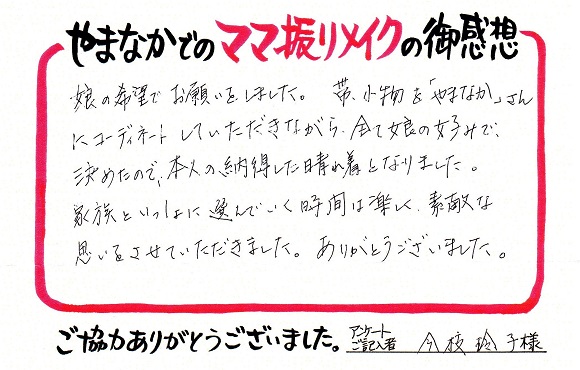 やまなかでのママ振りメイクの御感想
娘の希望でお願いをしました。 帯、小物を「やまなか」さん
にコーディネートしていただきながら、全て娘の好みで、
決めたので、本人の納得した晴れ着となりました。
家族といっしょに選んでいく時間は楽しく、素敵な
思いをさせていただきました。ありがとうございました。
ご協力ありがとうございました。 アンケートご記入者 今枝 玲子様